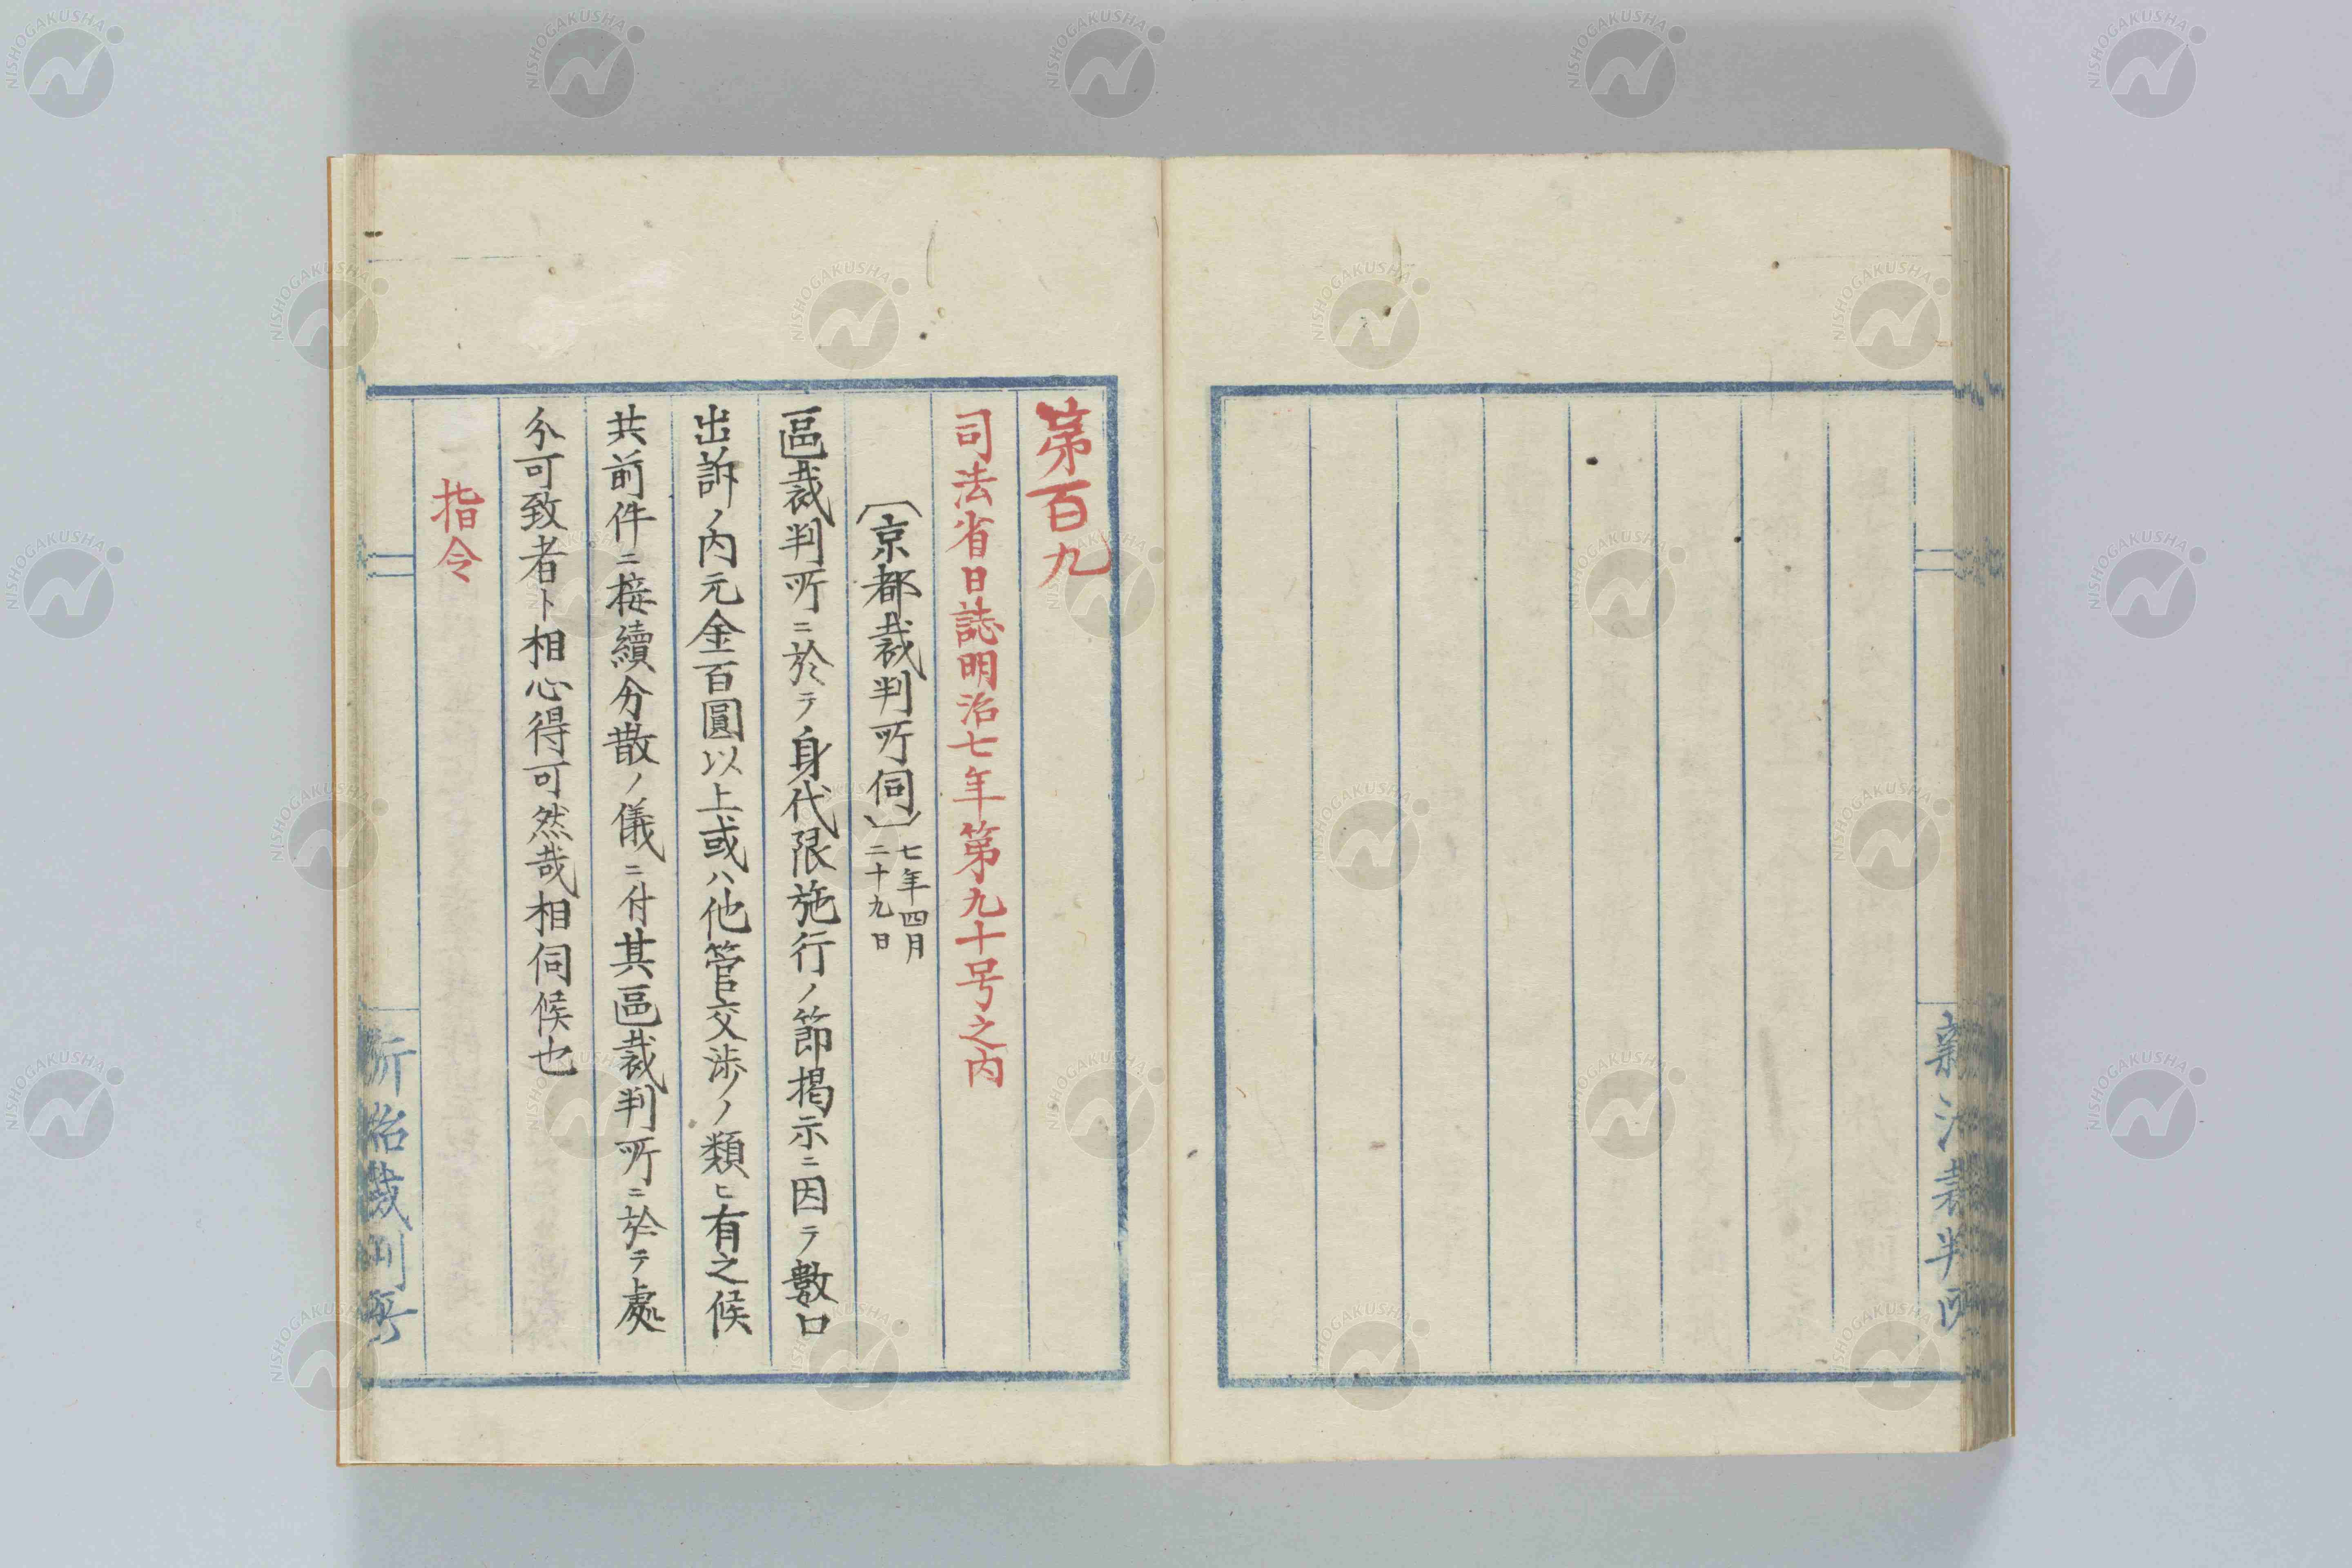 第百九
司法省日誌明治七年第九十号之内
〔京都裁判所伺〕七年四月二十九日
區裁判所ニ於テ身代限施行ノ節掲示ニ因テ數口
出訴ノ内元金百圓以上或ハ他管交渉ノ類ヒ有之候
共前件ニ接續分散ノ儀ニ付其區裁判所ニ於テ處
分可致者ト相心得可然哉相伺候也
指令
新治裁判所
新治裁判所
NISHOGAKUSHA